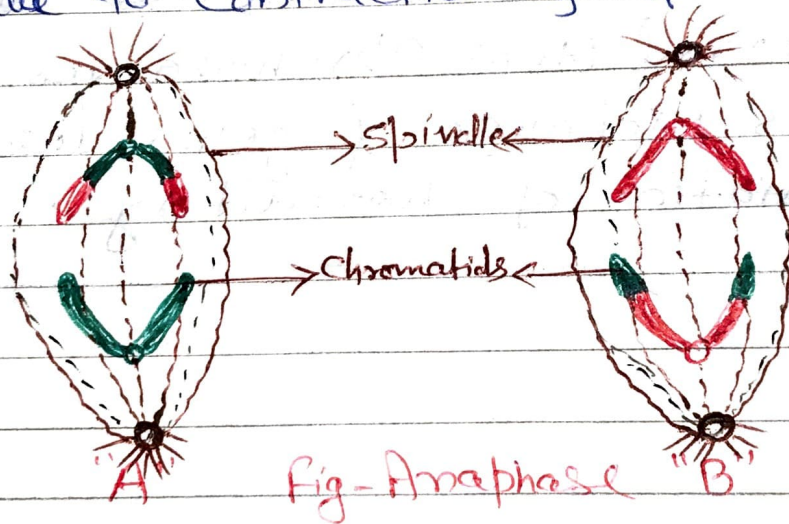 Spindle
Chromatids
"A" Fig-Anaphase "B"